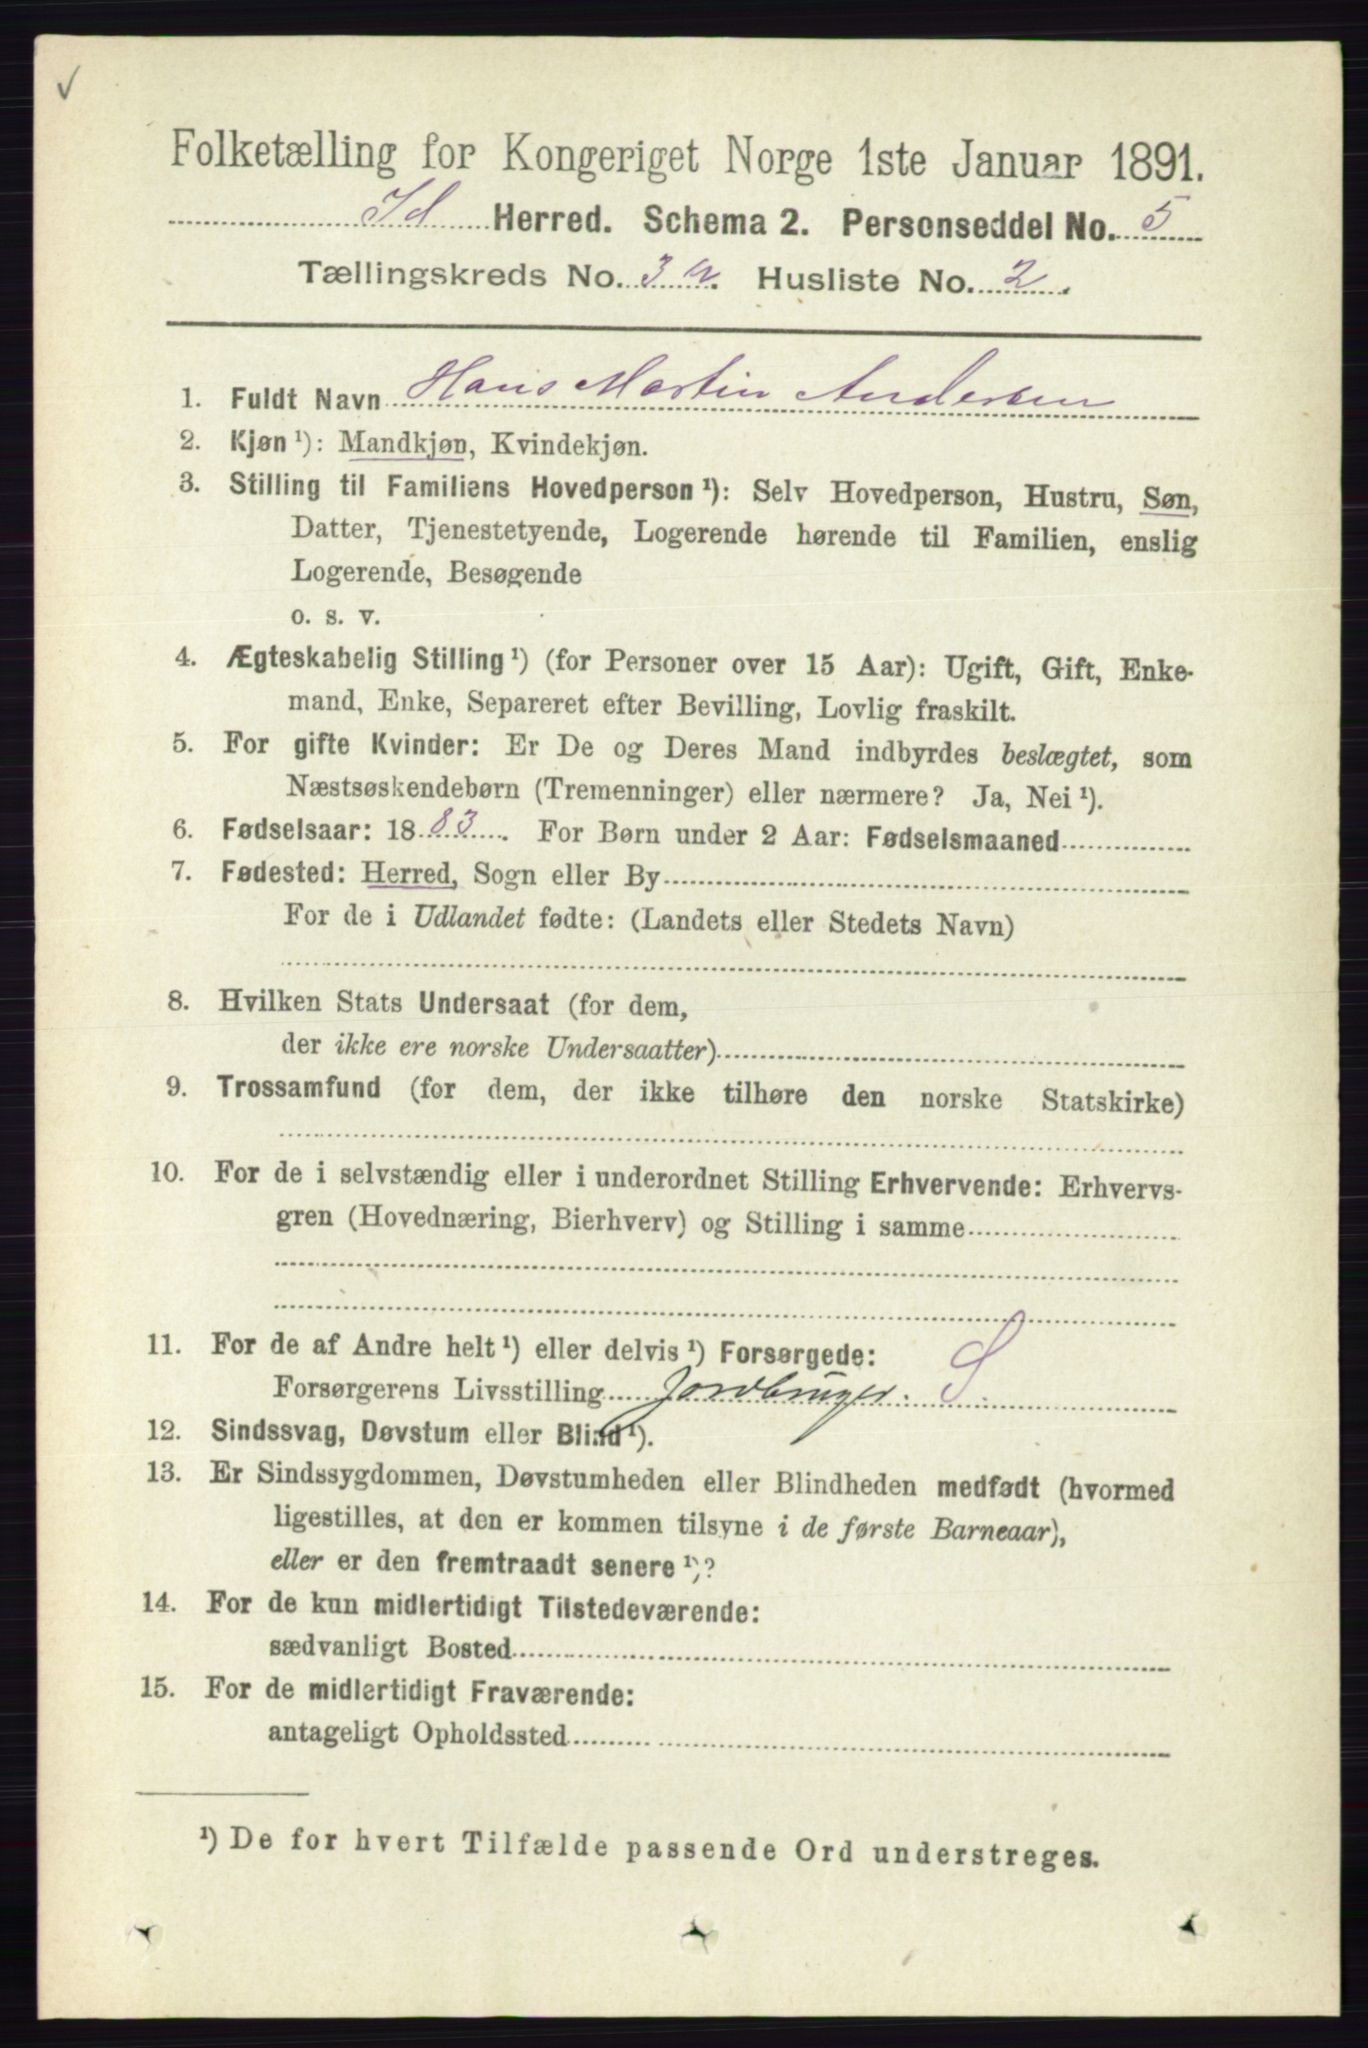 Folketælling for Kongeriget Norge 1ste Januar 1891.
Id Herred. Schema 2. Personseddel No. 5
Tællingskreds No. 3 a. Husliste No. 2.
1. Fuldt Navn Hans Martin Andersen
2. Kjøn¹): Mandkjøn, Kvindekjøn.
3. Stilling til Familiens Hovedperson¹): Selv Hovedperson, Hustru, Søn,
Datter, Tjenestetyende, Logerende hørende til Familien, enslig
Logerende, Besøgende
o. s. v.
4. Ægteskabelig Stilling¹) (for Personer over 15 Aar): Ugift, Gift, Enke-
mand, Enke, Separeret efter Bevilling, Lovlig fraskilt.
5. For gifte Kvinder: Er De og Deres Mand indbyrdes beslægtet, som
Næstsøskendebørn (Tremenninger) eller nærmere? Ja, Nei¹).
6. Fødselsaar: 1883. For Børn under 2 Aar: Fødselsmaaned
7. Fødested: Herred, Sogn eller By
For de i Udlandet fødte: (Landets eller Stedets Navn)
8. Hvilken Stats Undersaat (for dem,
der ikke ere norske Undersaatter)
9. Trossamfund (for dem, der ikke tilhøre den norske Statskirke)
10. For de i selvstændig eller i underordnet Stilling Erhvervende: Erhvervs-
gren (Hovednæring, Bierhverv) og Stilling i samme
11. For de af Andre helt¹) eller delvis¹) Forsørgede:
Forsørgerens Livsstilling Jordbruger. S.
12. Sindssvag, Døvstum eller Blind¹).
13. Er Sindssygdommen, Døvstumheden eller Blindheden medfødt (hvormed
ligestilles, at den er kommen tilsyne i de første Barneaar),
eller er den fremtraadt senere¹)?
14. For de kun midlertidigt Tilstedeværende:
sædvanligt Bosted
15. For de midlertidigt Fraværende:
antageligt Opholdssted
¹) De for hvert Tilfælde passende Ord understreges.